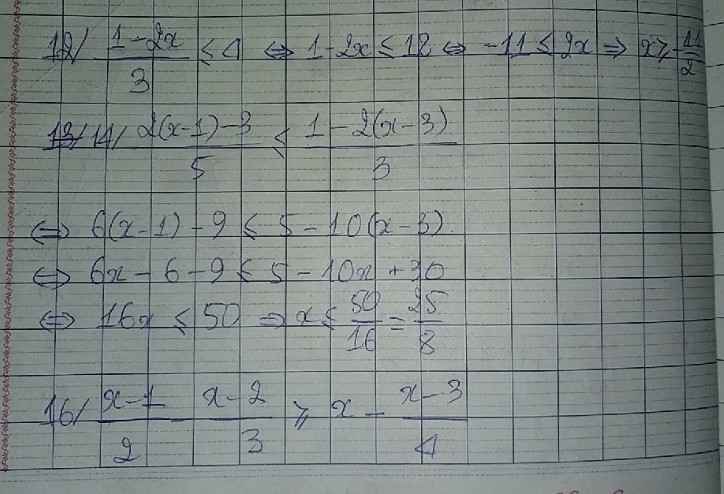 12/ (1-2x)/3 ≤ 4 ⇔ 1-2x ≤ 12 ⇔ -11 ≤ 2x ⇒ x ≥ -11/2
13/ 14/ (2(x-1)-3)/5 ≤ (1-2(x-3))/3
⇔ 6(x-1)-9 ≤ 5-10(x-3)
⇔ 6x-6-9 ≤ 5-10x+30
⇔ 16x ≤ 50 ⇒ x ≤ 50/16 = 25/8
16/ (x-1)/2 - (x-2)/3 ≥ x - (x-3)/4